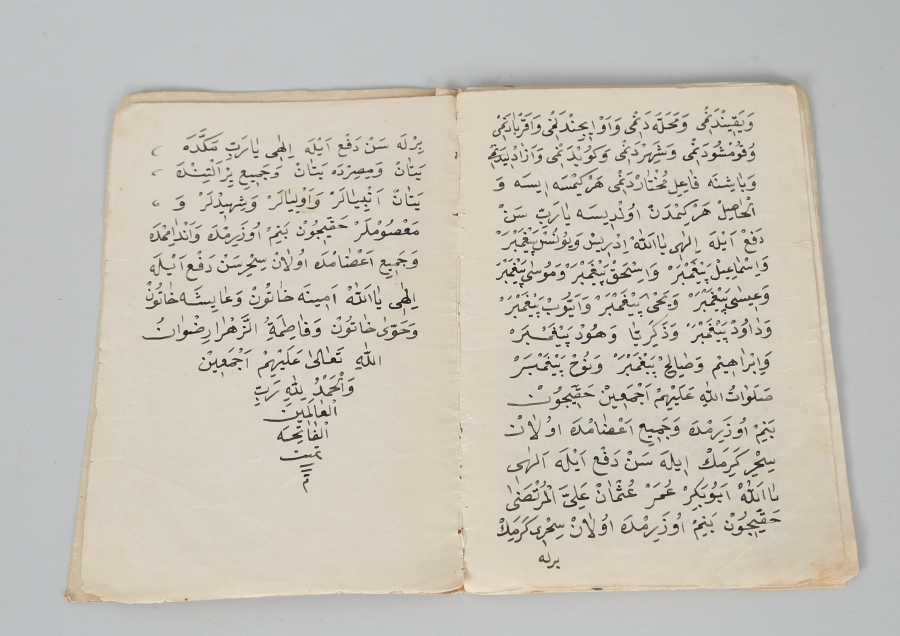 وَيَقِينْدَنْمِى وَمَحَلَّه دَنْمِى وَاَوْ اِيچِنْدَنْمِى وَاَقْرَبَادَنْمِى
وَقُوُمْشُودَنْمِى وَشَهِرْدَنْمِى وَكُويْدَنْمِى وَاٰزَادْلِيدَنْمِى
وَبَاشِنَه فَاعِلِ مُخْتَارْدَنْمِى هَرْكِيمْسَه اِيسَه وَ
الْحَاصِلْ هَرْكِمْدَنْ اُولْدِيسَه يَارَبِّ سَنْ
دَفْعِ اَيْلَه اِلٰهِى يَااَللّٰهْ اِدْرِيسْ وَيُونُسْ پَيْغَمْبَرْ
وَاِسْمَاعِيلْ پَيْغَمْبَرْ وَاِسْحٰقْ پَيْغَمْبَرْ وَمُوسٰى پَيْغَمْبَرْ
وَعِيسٰى پَيْغَمْبَرْ وَيَحْيٰى پَيْغَمْبَرْ وَاَيُّوبْ پَيْغَمْبَرْ
وَدَاوُدْ پَيْغَمْبَرْ وَذَكَرِيَّا وَهُودْ پَيْغَمْبَرْ
وَاِبْرَاهِيمْ وَصَالِحْ پَيْغَمْبَرْ وَنُوحْ پَيْغَمْبَرْ
صَلَوَاتُ اللّٰهِ عَلَيْهِمْ اَجْمَعِينْ حَقِّيچُونْ
بَنِمْ اُوزَرِمْدَه وَجَمِيعِ اَعْضَامْدَه اُولَانْ
سِحْرِ كَرَمِكْ اِيلَه سَنْ دَفْعِ اَيْلَه اَلٰهِى
يَااَللّٰهْ اَبُوبَكِرْ عُمَرْ عُثْمَانْ عَلِىَّ الْمُرْتَضٰى
حَقِّيچُونْ بَنِمْ اُوزَرِمْدَه اُولَانْ سِحْرِى كَرَمِكْ
برله
بِرْلَه سَنْ دَفْعِ اَيْلَه اِلٰهِى يَارَبِّ مَكَّدَه
يَتَانْ وَمِصِرْدَه يَتَانْ وَجَمِيعِ يِرْ اَلْتِنْدَه
يَتَانْ اَنْبِيَالَرْ وَاَوْلِيَالَرْ وَشَهِيدْلَرْ وَ
مَعْصُومْلَرْ حَقِّيچُونْ بَنِمْ اُوزَرِمْدَه وَاَنْدَامِمْدَه
وَجَمِيعِ اَعْضَامْدَه اُولَانْ سِحْرِ سَنْ دَفْعِ اَيْلَه
اِلٰهِى يَااَللّٰهْ اَمِينَه خَاتُونْ وَعَايِشَه خَاتُونْ
وَحَوّٰى خَاتُونْ وَفَاطِمَةُ الزَّهْرَا رِضْوَانُ
اللّٰهِ تَعَالٰى عَلَيْهِمْ اَجْمَعِينْ
وَالْحَمْدُ لِلّٰهِ رَبِّ
الْعَالَمِينْ
الْفَاتِحَه
تمت
م